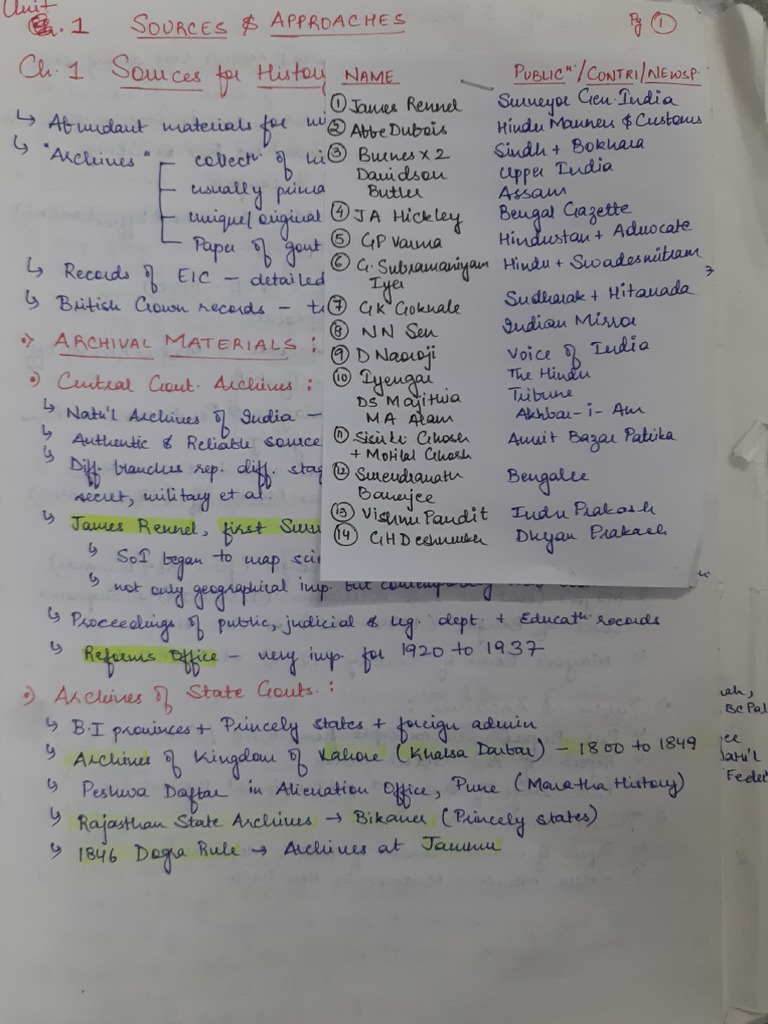 Unit
1 SOURCES & APPROACHES Pg ①
Ch. 1 Sources for Histor
↳ Abundant materials for
↳ "Archives" - collectn of
- usually prima
- unique/original
- Paper of govt
↳ Records of EIC – detailed
↳ British Crown records –
ARCHIVAL MATERIALS :
Central Govt. Archives :
↳ Natn'l Archives of India –
↳ Authentic & Reliable source
↳ Diff. branches rep. diff. stag
secret, military et al.
↳ James Rennel, first Surv
↳ SoI began to map sci
↳ not only geographical imp. but contemporary
↳ Proceedings of public, judicial & leg. dept. + Educatn records
↳ Reforms Office – very imp. for 1920 to 1937
Archives of State Govts. :
↳ B.I provinces + Princely states + foreign admin
↳ Archives of Kingdom of Lahore (Khalsa Darbar) – 1800 to 1849
↳ Peshwa Daftar in Alienation Office, Pune (Maratha History)
↳ Rajasthan State Archives → Bikaner (Princely states)
↳ 1846 Dogra Rule → Archives at Jammu
NAME PUBLICn/CONTRI/NEWSP.
① James Rennel Surveyor Gen. India
② Abbe Dubois Hindu Manners & Customs
③ Burnes x 2 Sindh + Bokhara
Davidson Upper India
Butler Assam
④ JA Hickley Bengal Gazette
⑤ GP Varma Hindustan + Advocate
⑥ G. Subramaniyam Hindu + Swadesmitram
Iyer
⑦ GK Gokhale Sudharak + Hitavada
⑧ NN Sen Indian Mirror
⑨ D Naoroji Voice of India
⑩ Iyengar The Hindu
DS Majithia Tribune
MA Alam Akhbar-i-Am
⑪ Sisir K Ghosh Amrit Bazar Patrika
+ Motilal Ghosh
⑫ Surendranath Bengalee
Banerjee
⑬ Vishnu Pandit Indu Prakash
⑭ GH Deshmukh Dnyan Prakash
Bc Pal
Natn'l